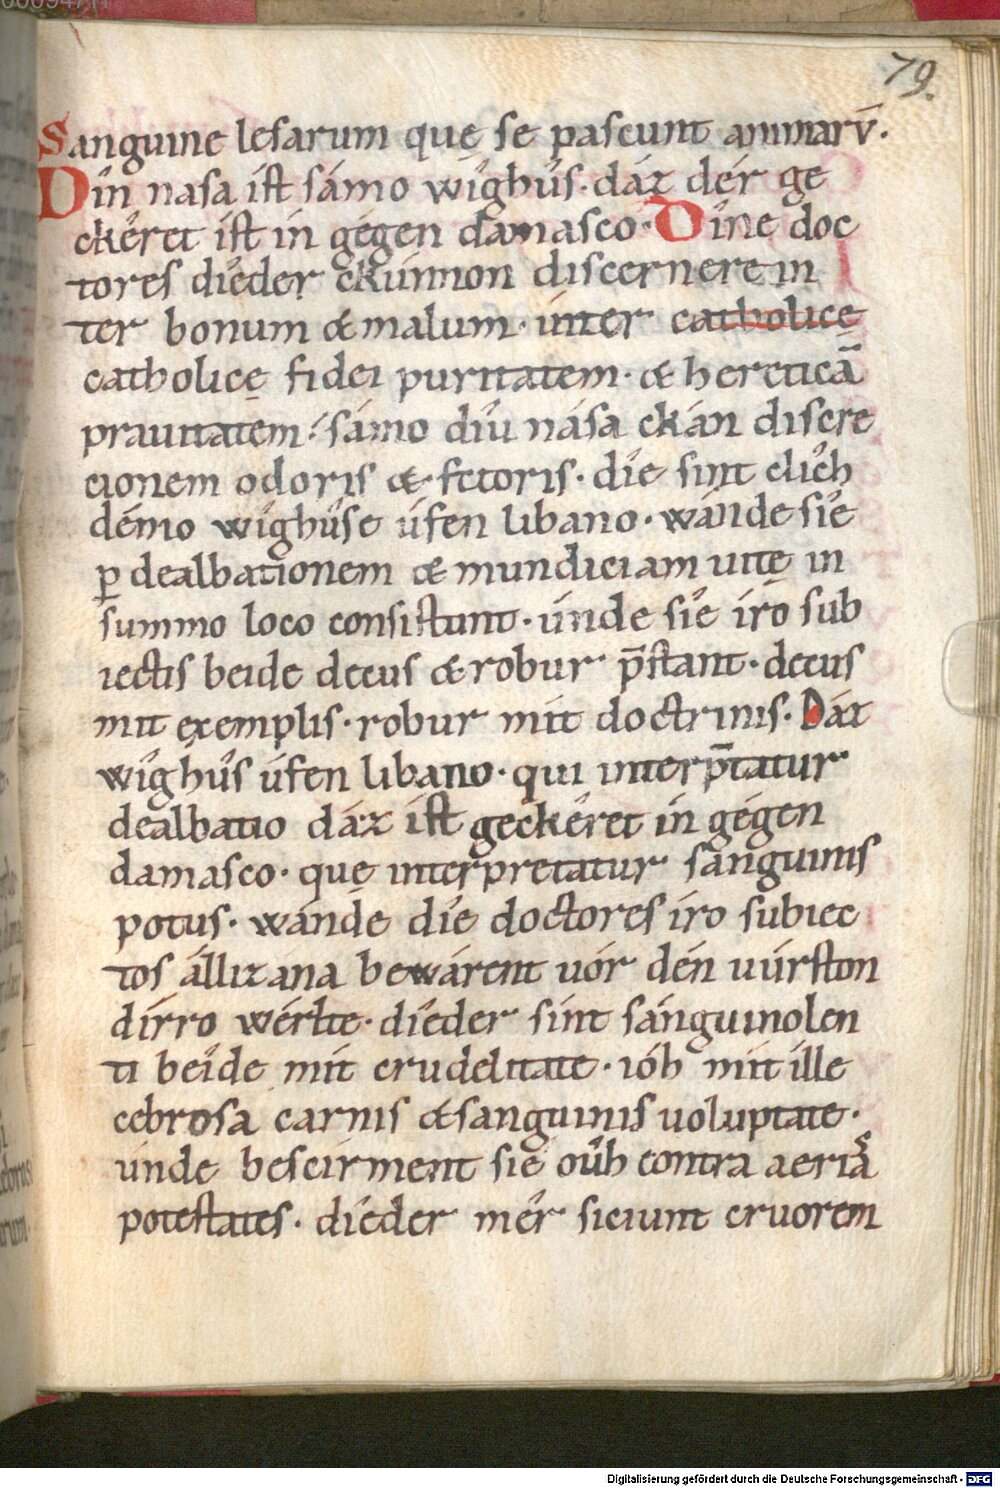 79.
Sanguine lesarum quę se pascunt animarū.
Dín nasa ist sámo wîghûs. dáz dér ge
ckêret ist ín gégen damasco. Dîne doc
tores dîeder ckúnnon discernere in
ter bonum & malum. inter catholicę
catholicę fidei puritatem. & hereticā
prauitatem. sámo díu nása ckán discre
cionem odoris & fetoris. díe sint elích
démo wîghûse úfen libano. wánde síe
ꝑ dealbationem & mundiciam uitę in
summo loco consistunt. únde síe iro sub
iectis beide decus & robur p̄stant. decus
mit exemplis. robur mit doctrinis. Dáz
wîghûs úfen libano. qui interp̄tatur
dealbatio dáz ist geckêret ín gégen
damasco. quę interpretatur sanguinis
potus. wánde díe doctores iro subiec
tos állizana bewárent uór dén uúrston
dírro wérlte. dîeder sint sánguinolen
ti beîde mit crudelitate. ióh mit ille
cebrosa carnis & sanguinis uoluptate.
únde bescirment síe oûh contra aeriā
potestates. dîeder mêr siciunt cruorem
Digitalisierung gefördert durch die Deutsche Forschungsgemeinschaft - DFG